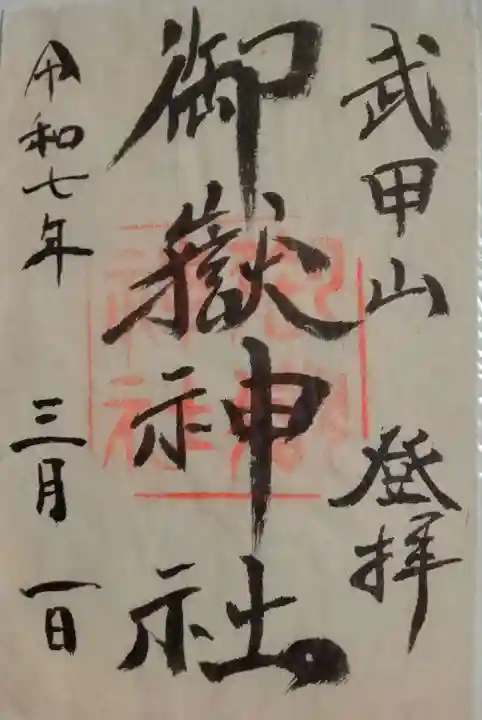 武甲山 登拝
御嶽神社
令和七年 三月 一日